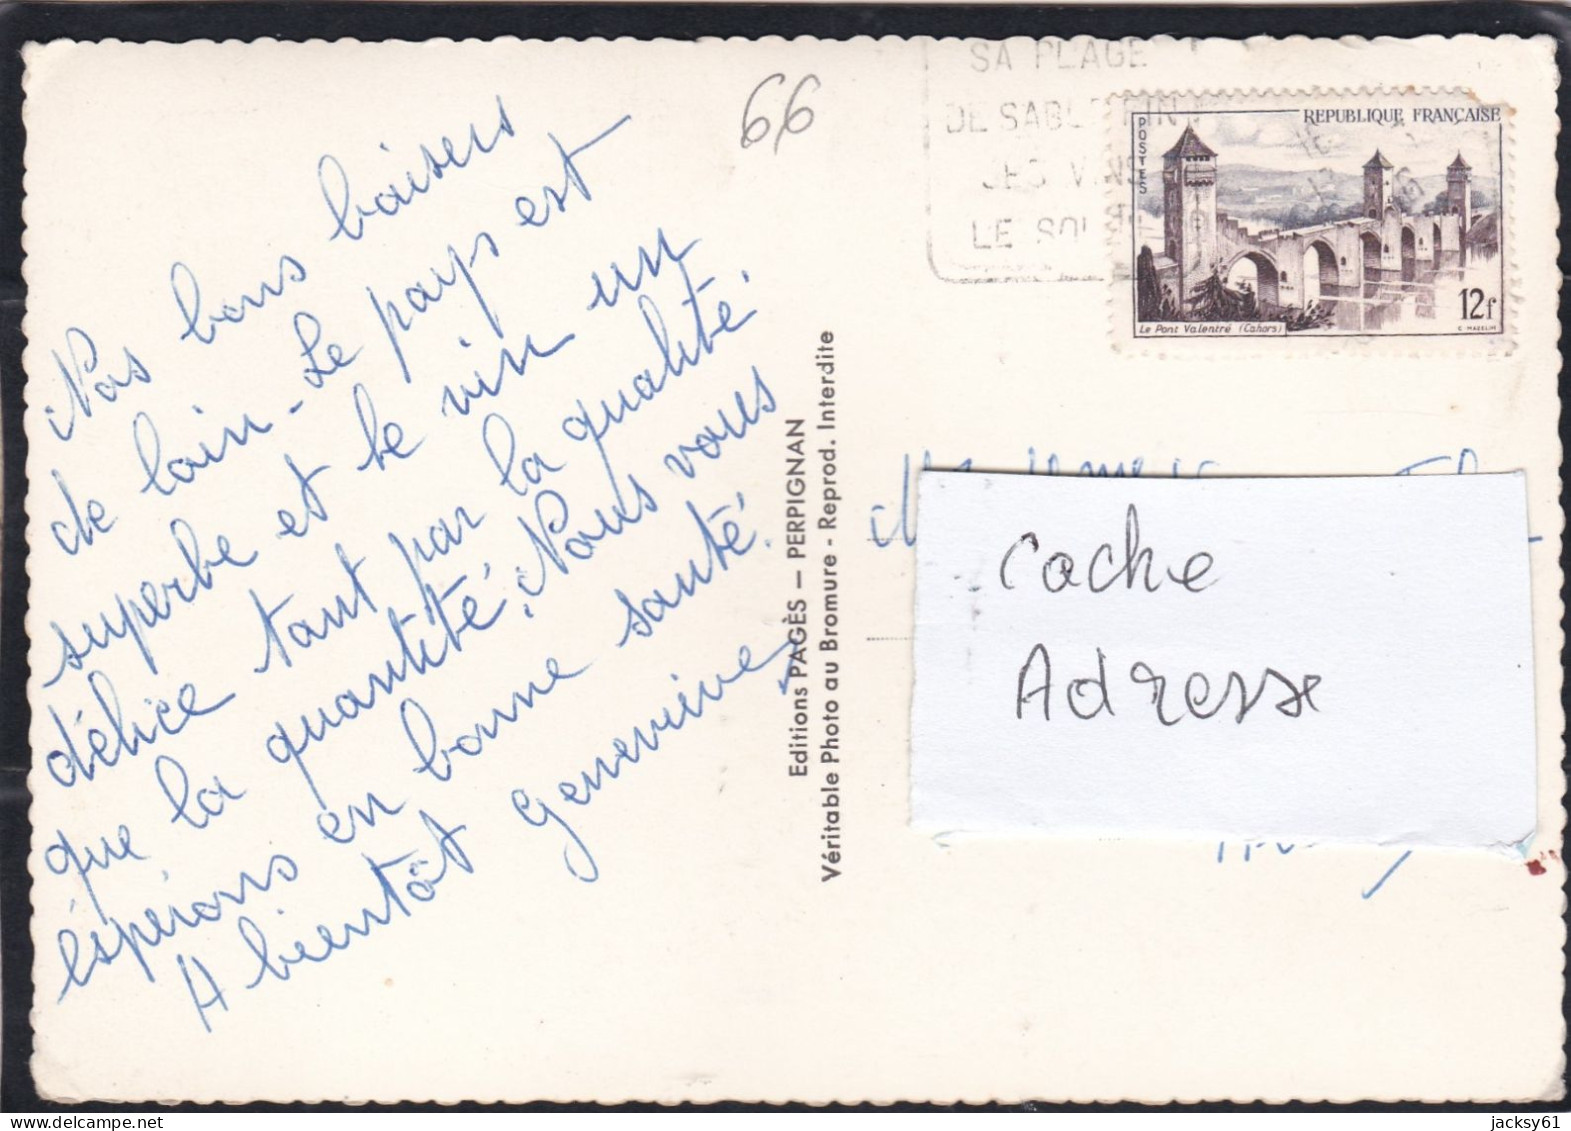 Nos bons baisers
de loin - Le pays est
superbe et le vin un
délice tant par la qualité.
que la quantité. Nous vous
éspérons en bonne santé.
A bientôt Geneviève
66
Editions PAGÈS — PERPIGNAN
Véritable Photo au Bromure - Reprod. Interdite
SA PLAGE
DE SABLE FIN
SES VINS
LE SOL
REPUBLIQUE FRANÇAISE
POSTES
12f
Le Pont Valentré (Cahors)
C. MAZELIN
Cache
Adresse
jacksy61